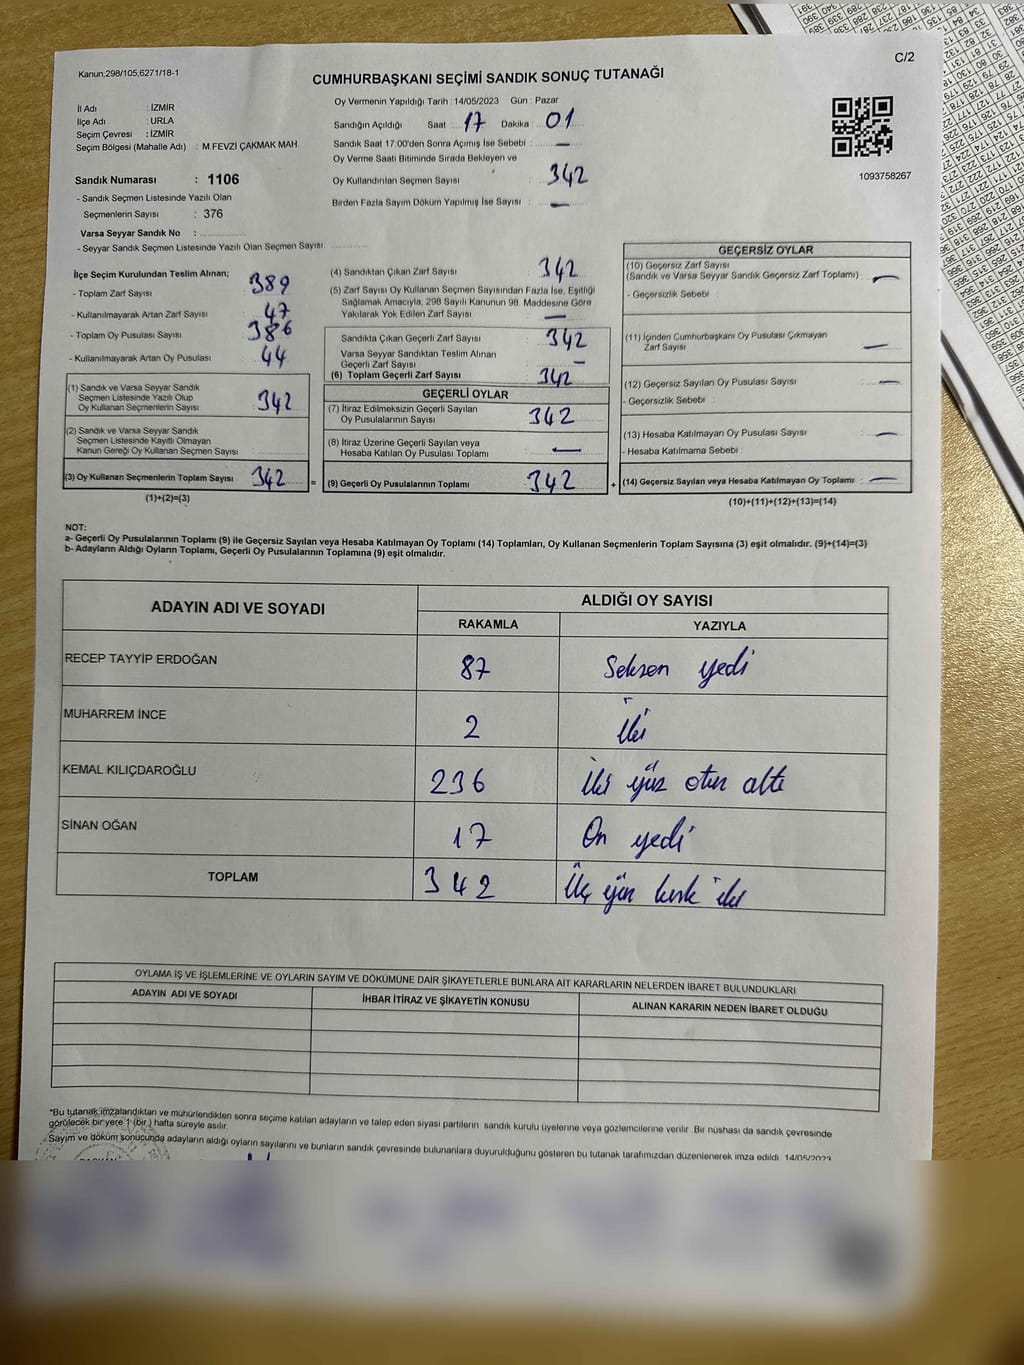 C/2
Kanun;298/105,6271/18-1
CUMHURBAŞKANI SEÇİMİ SANDIK SONUÇ TUTANAĞI
İl Adı : İZMİR
İlçe Adı : URLA
Seçim Çevresi : İZMİR
Seçim Bölgesi (Mahalle Adı) : M.FEVZİ ÇAKMAK MAH
Sandık Numarası : 1106
- Sandık Seçmen Listesinde Yazılı Olan
Seçmenlerin Sayısı : 376
Varsa Seyyar Sandık No :
- Seyyar Sandık Seçmen Listesinde Yazılı Olan Seçmen Sayısı:
Oy Vermenin Yapıldığı Tarih : 14/05/2023 Gün : Pazar
Sandığın Açıldığı Saat : 17 Dakika : 01
Sandık Saat 17:00'den Sonra Açımış İse Sebebi : —
Oy Verme Saati Bitiminde Sırada Bekleyen ve
Oy Kullandırılan Seçmen Sayısı : 342
Birden Fazla Sayım Döküm Yapılmış İse Sayısı : —
1093758267
İlçe Seçim Kurulundan Teslim Alınan;
- Toplam Zarf Sayısı : 389
- Kullanılmayarak Artan Zarf Sayısı : 47
- Toplam Oy Pusulası Sayısı : 386
- Kullanılmayarak Artan Oy Pusulası : 44
(1) Sandık ve Varsa Seyyar Sandık
Seçmen Listesinde Yazılı Olup
Oy Kullanan Seçmenlerin Sayısı : 342
(2) Sandık ve Varsa Seyyar Sandık
Seçmen Listesinde Kayıtlı Olmayan
Kanun Gereği Oy Kullanan Seçmen Sayısı :
(3) Oy Kullanan Seçmenlerin Toplam Sayısı : 342 =
(1)+(2)=(3)
(4) Sandıktan Çıkan Zarf Sayısı : 342
(5) Zarf Sayısı Oy Kullanan Seçmen Sayısından Fazla İse, Eşitliği
Sağlamak Amacıyla, 298 Sayılı Kanunun 98. Maddesine Göre
Yakılarak Yok Edilen Zarf Sayısı : —
Sandıkta Çıkan Geçerli Zarf Sayısı : 342
Varsa Seyyar Sandıktan Teslim Alınan
Geçerli Zarf Sayısı : —
(6) Toplam Geçerli Zarf Sayısı : 342
GEÇERLİ OYLAR
(7) İtiraz Edilmeksizin Geçerli Sayılan
Oy Pusulalarının Sayısı : 342
(8) İtiraz Üzerine Geçerli Sayılan veya
Hesaba Katılan Oy Pusulası Toplamı : —
(9) Geçerli Oy Pusulalarının Toplamı : 342 +
GEÇERSİZ OYLAR
(10) Geçersiz Zarf Sayısı
(Sandık ve Varsa Seyyar Sandık Geçersiz Zarf Toplamı) : —
- Geçersizlik Sebebi :
(11) İçinden Cumhurbaşkanı Oy Pusulası Çıkmayan
Zarf Sayısı : —
(12) Geçersiz Sayılan Oy Pusulası Sayısı : —
- Geçersizlik Sebebi :
(13) Hesaba Katılmayan Oy Pusulası Sayısı : —
- Hesaba Katılmama Sebebi :
(14) Geçersiz Sayılan veya Hesaba Katılmayan Oy Toplamı : —
(10)+(11)+(12)+(13)=(14)
NOT:
a- Geçerli Oy Pusulalarının Toplamı (9) ile Geçersiz Sayılan veya Hesaba Katılmayan Oy Toplamı (14) Toplamları, Oy Kullanan Seçmenlerin Toplam Sayısına (3) eşit olmalıdır. (9)+(14)=(3)
b- Adayların Aldığı Oyların Toplamı, Geçerli Oy Pusulalarının Toplamına (9) eşit olmalıdır.
ADAYIN ADI VE SOYADI ALDIĞI OY SAYISI
RAKAMLA YAZIYLA
RECEP TAYYİP ERDOĞAN 87 Seksen yedi
MUHARREM İNCE 2 İki
KEMAL KILIÇDAROĞLU 236 İki yüz otuz altı
SİNAN OĞAN 17 On yedi
TOPLAM 342 Üç yüz kırk iki
OYLAMA İŞ VE İŞLEMLERİNE VE OYLARIN SAYIM VE DÖKÜMÜNE DAİR ŞİKAYETLERLE BUNLARA AİT KARARLARIN NELERDEN İBARET BULUNDUKLARI
ADAYIN ADI VE SOYADI İHBAR İTİRAZ VE ŞİKAYETİN KONUSU ALINAN KARARIN NEDEN İBARET OLDUĞU
*Bu tutanak imzalandıktan ve mühürlendikten sonra seçime katılan adayların ve talep eden siyasi partilerin sandık kurulu üyelerine veya gözlemcilerine verilir. Bir nüshası da sandık çevresinde
görülecek bir yere 1 (bir ) hafta süreyle asılır.
Sayım ve döküm sonucunda adayların aldığı oyların sayılarını ve bunların sandık çevresinde bulunanlara duyurulduğunu gösteren bu tutanak tarafımızdan düzenlenerek imza edildi. 14/05/2023